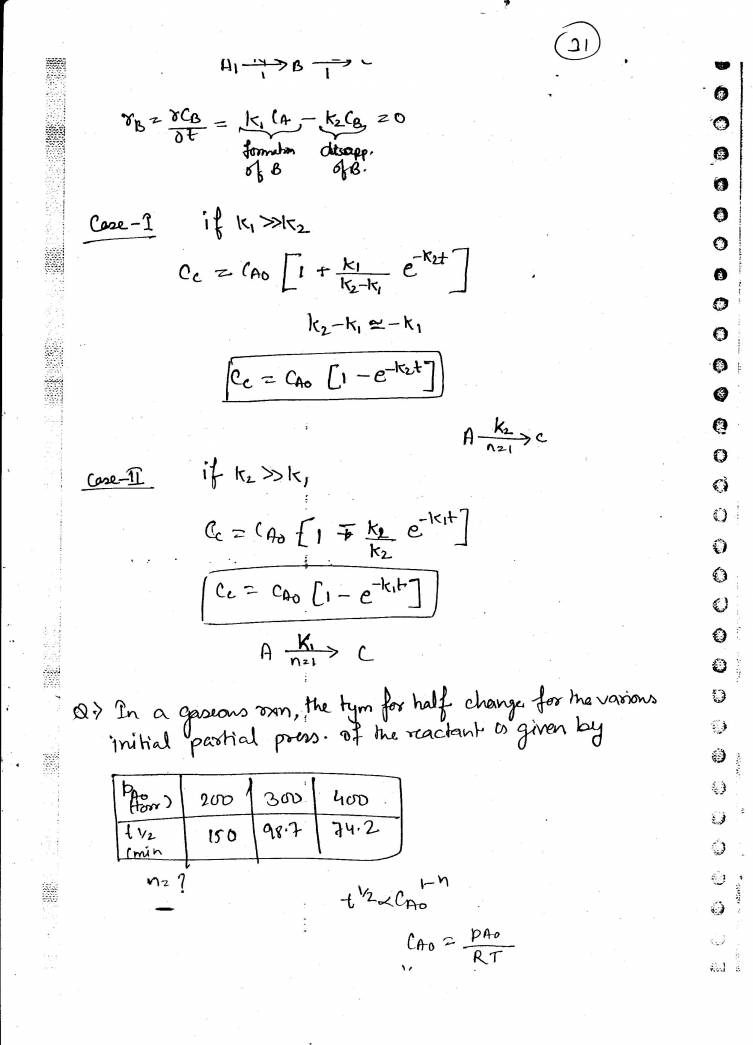 21
A → B →
γB = γCB/γt = k1 CA - k2 CB = 0
formation disapp.
of B of B.
Case-I if k1 >> k2
Cc = CA0 [1 + k1/(k2-k1) e^-k2t]
k2-k1 ≃ -k1
Cc = CA0 [1 - e^-k2t]
A --k2, n=1--> C
Case-II if k2 >> k1
Cc = CA0 [1 - k2/k2 e^-k1t]
Cc = CA0 [1 - e^-k1t]
A --K1, n=1--> C
Q⇒ In a gaseous rxn, the tym for half change for the various
initial partial press. of the reactant is given by
PA0 (torr) 200 300 400
t 1/2 (min 150 98.7 74.2
n = ?
t^1/2 ∝ CA0^1-n
CA0 = PA0/RT